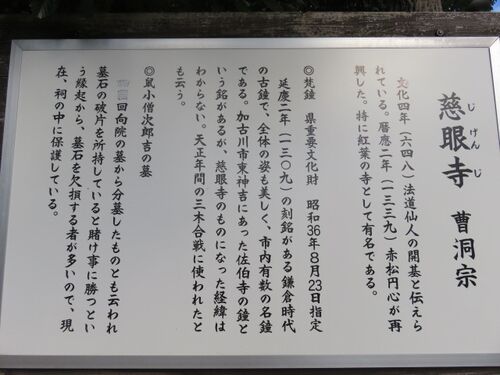 慈眼寺 曹洞宗
じげんじ
化四年(六四八)法道仙人の開基と伝えら
れている。暦應二年(一三三九)赤松円心が再
興した。特に紅葉の寺として有名である。
◎梵鐘 県重要文化財 昭和36年8月23日指定
延慶二年(一三〇九)の刻銘がある鎌倉時代
の古鐘で、全体の姿も美しく、市内有数の名鐘
である。加古川市東神吉にあった佐伯寺の鐘と
いう銘があるが、慈眼寺のものになった経緯は
わからない。天正年間の三木合戦に使われたと
も云う。
◎鼠小僧次郎吉の墓
回向院の墓から分墓したものとも云われ
墓石の破片を所持していると賭け事に勝つとい
う縁起から、墓石を欠損する者が多いので、現
在、祠の中に保護している。